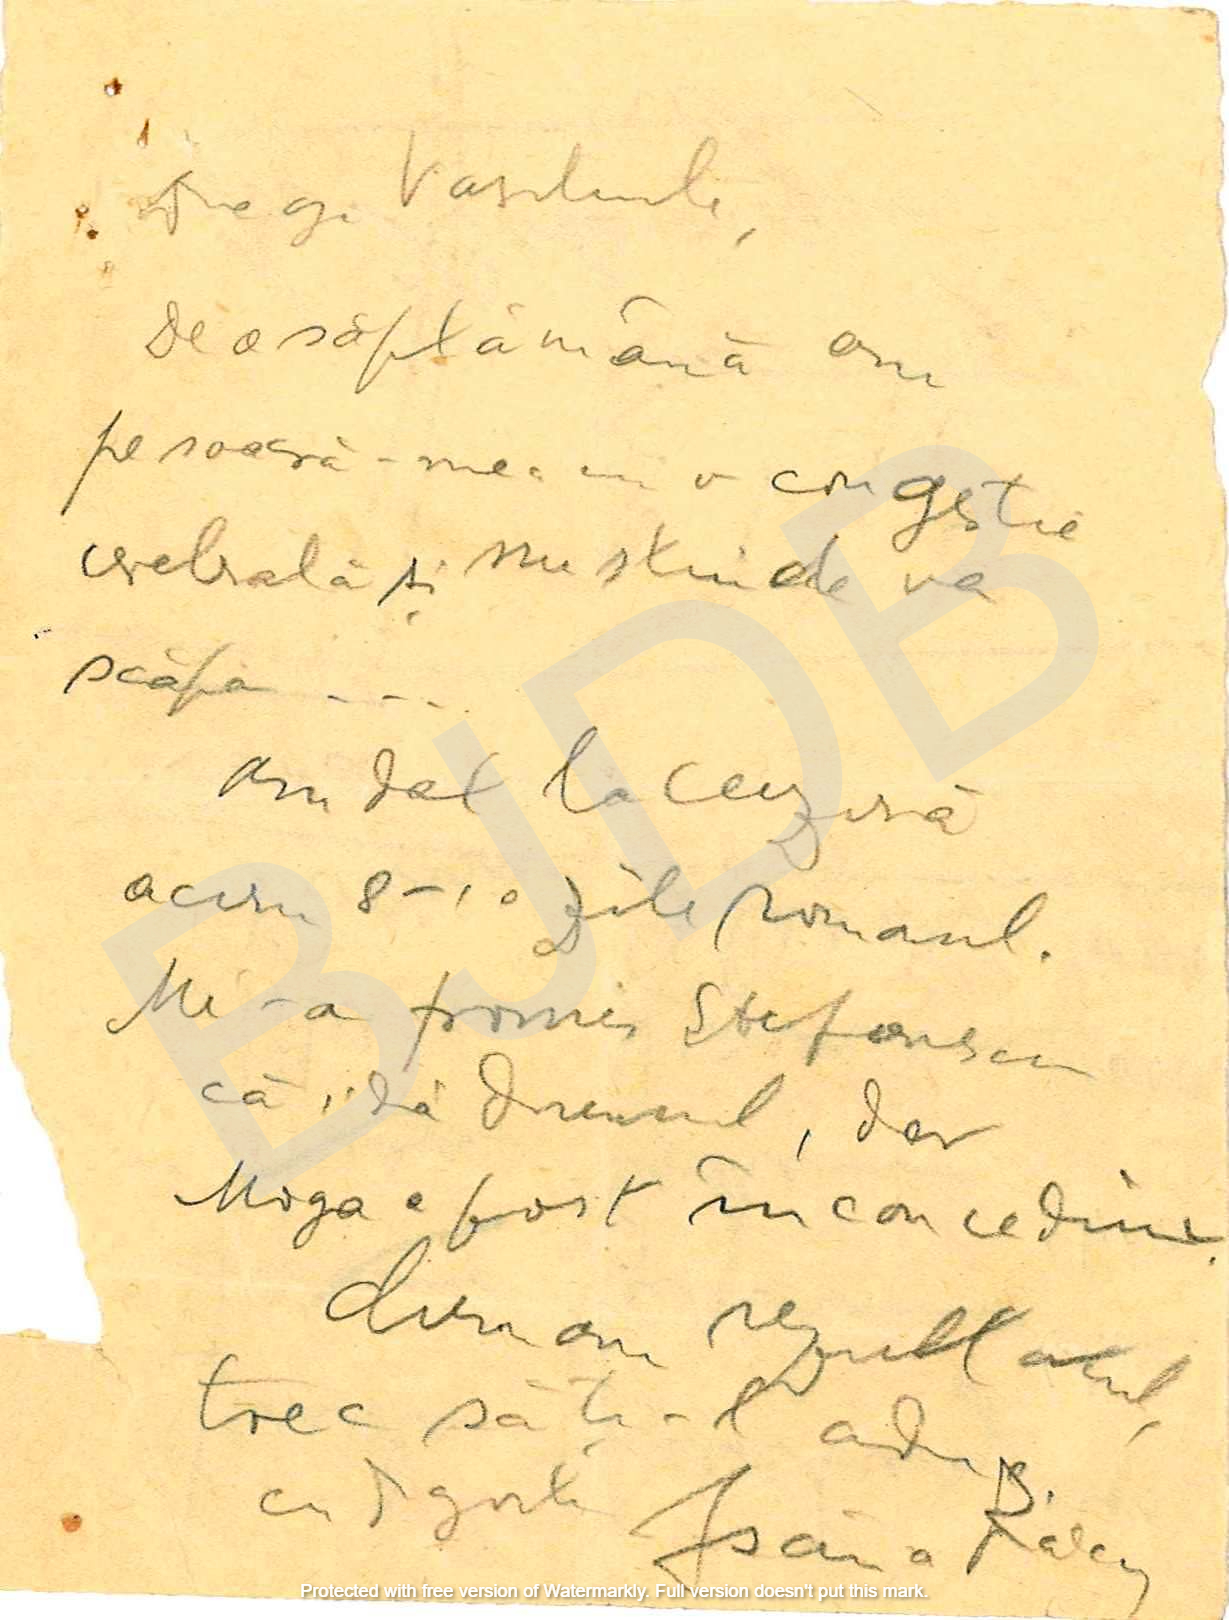 Dragi Vasilule,
De o săptămână am
pe soacră-mea cu o congestie
cerebrală și nu știu de va
scăpa ....
Am dat la cenzură
acum 8-10 zile romanul.
Mi-a promis Stefanescu
că-i dă drumul, dar
Moga a fost în concediu.
Cum am rezultatul,
trec să ți-l aduc
cu dragoste
BJDB
Protected with free version of Watermarkly. Full version doesn't put this mark.